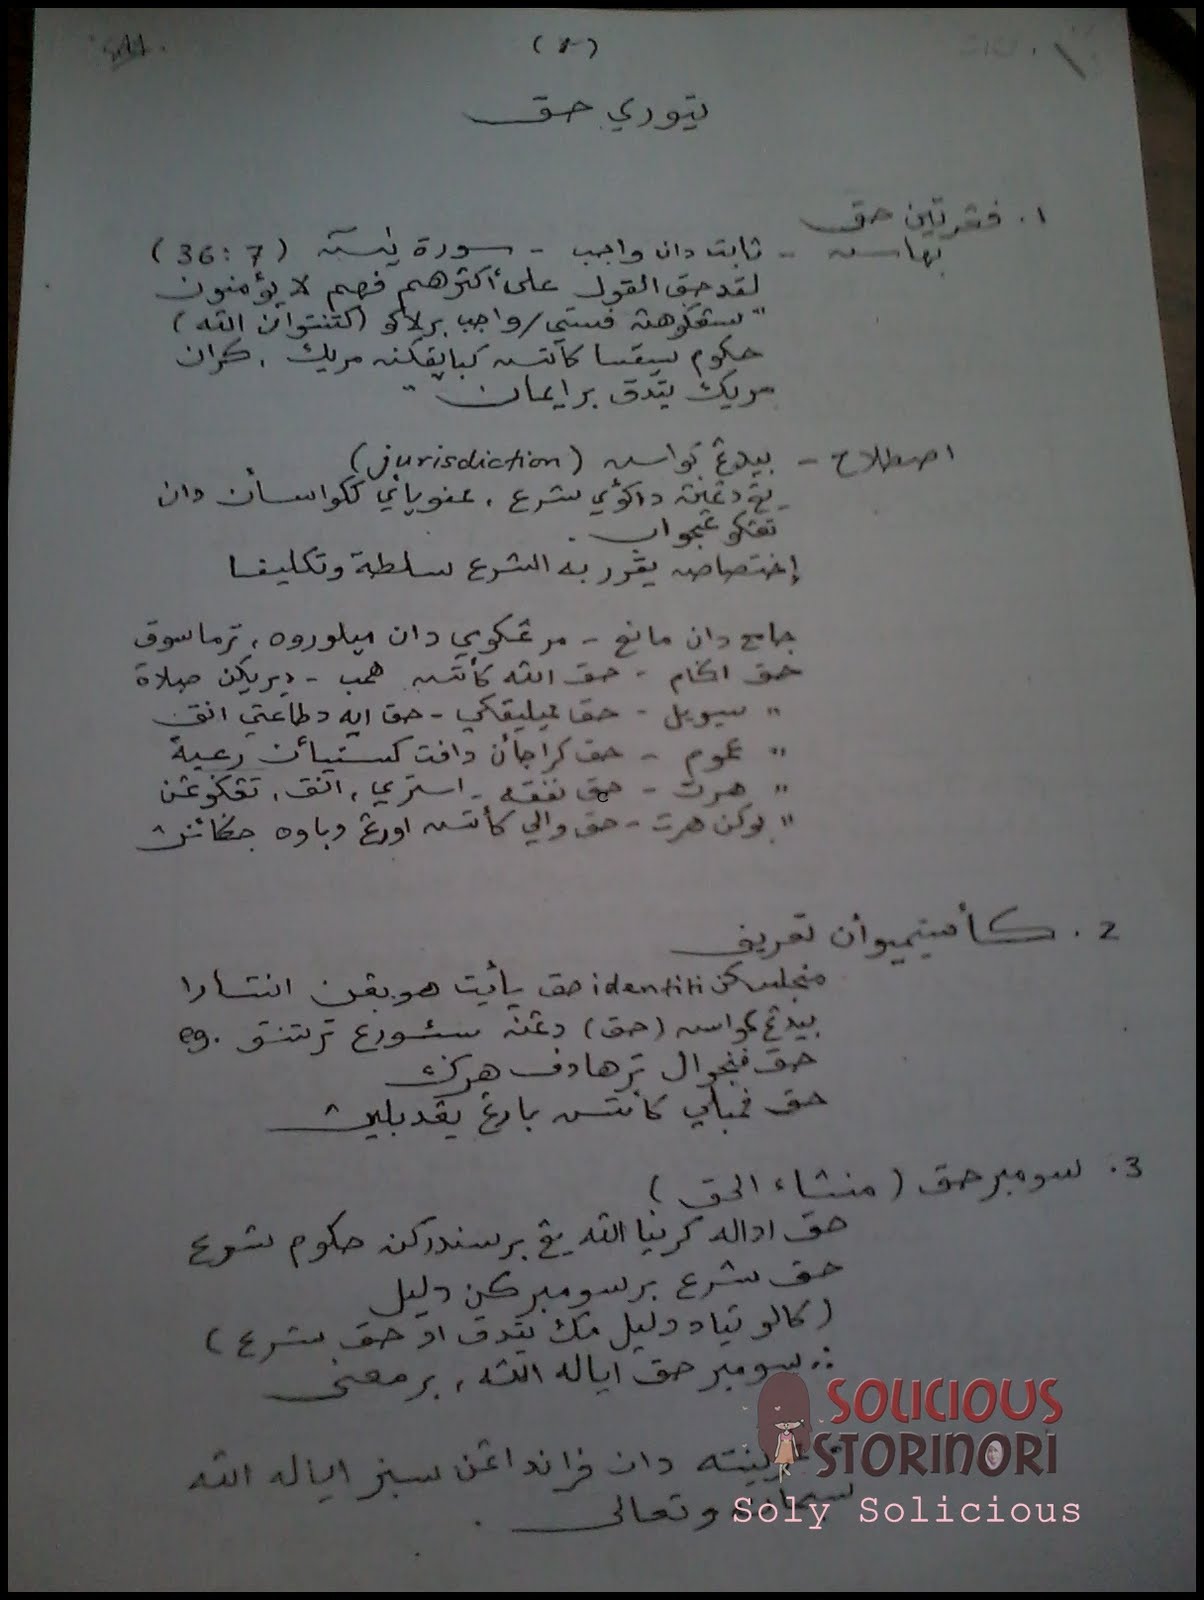 (١)
تيوري حق
١. فڠرتين حق
بهاس - ثابت دان واجب - سورة يسٓ (36:7)
لقد حق القول على أكثرهم فهم لا يؤمنون
"سسڠݢوهڽ فستي/واجب برلاكو (كتنتوان الله)
حكوم سيقسا كأتس كباڽقكن مريك، كران
مريك تيدق برايمان"
اصطلاح - بيدڠ كواس (jurisdiction)
يڠ داكوٴي شرع، ممڤوڽاٴي ككواسأن دان
تڠݢوڠجواب.
إختصاص يقرر به الشرع سلطة وتكليفا
جامع دان مانع - مرڠكومي دان مڽلوروه، ترماسوق
حق اݢام - حق الله كأتس همب - ديريكن صلاة
" سيويل - حق ميليقكي - حق ايه دطاعتي انق
" عموم - حق كراجأن دافت كستياٴن رعية
" هرت - حق نفقه - استري، انق، تڠݢوڠن
" بوكن هرت - حق والي كأتس اورڠ دباوه جݢاٴنڽ
2. كأيستيميوأن تعريف
منجلسكن identiti حق يأيت هوبوڠن انتارا
بيدڠ كواس (حق) دڠن سسئورڠ ترتنتو .eg
حق فنجوال ترهادف هرݢ
حق فمبلي كأتس بارڠ يڠ دبلي
3. سومبر حق (منشاء الحق)
حق اداله كرنيا الله يڠ برسندركن حكوم شرع
حق شرع برسومبركن دليل
(كالو تياد دليل مك تيدق اد حق شرع)
∴ سومبر حق اياله الله، برمعنى
دان فراندڠن سبنر اياله الله
سبحانه وتعالى.
SOLICIOUS
STORINORI
Soly Solicious